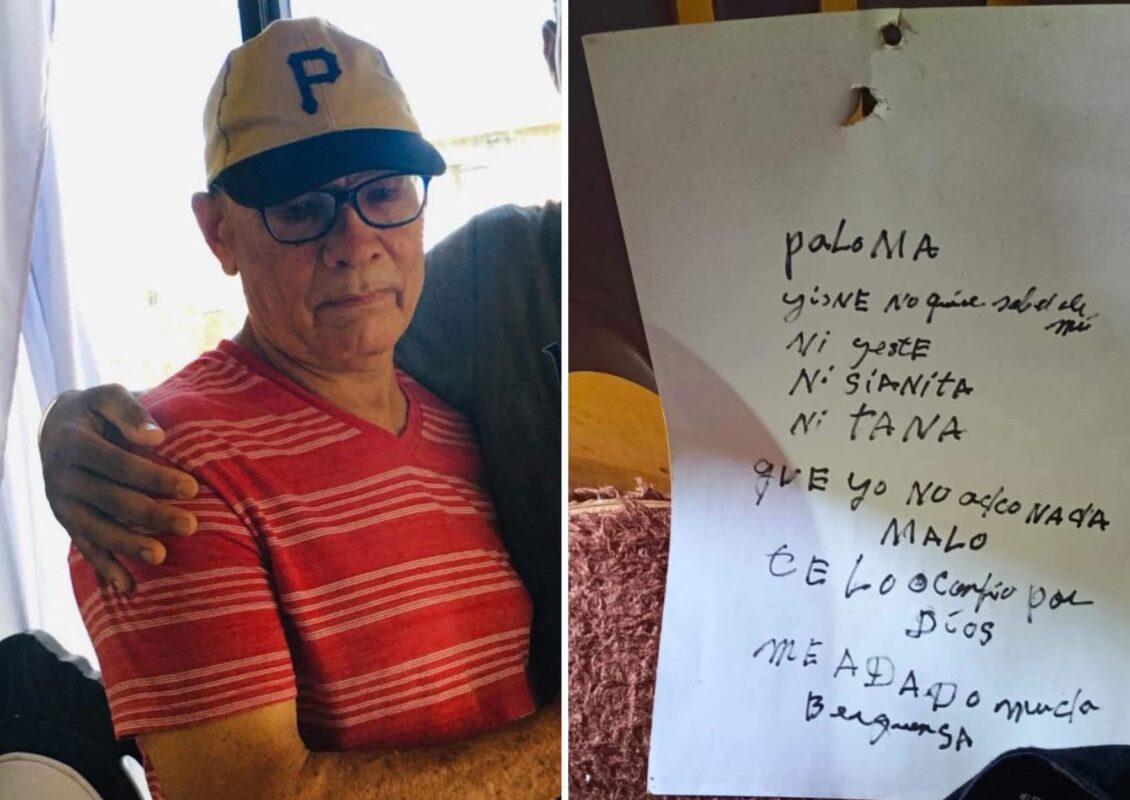 P
paLoMA
yisNE No quiere sabel de
mi
Ni yestE
Ni SiANitA
Ni TANA
qUE yo NO adco NAdA
MALO
tE LO oconfio por
Dios
ME ADADO mucda
BerguenSA